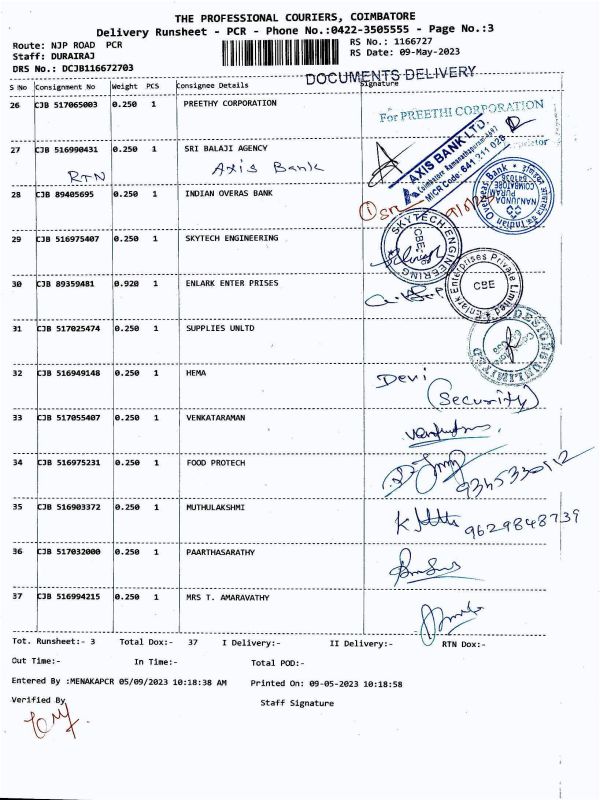 THE PROFESSIONAL COURIERS, COIMBATORE
Delivery Runsheet - PCR - Phone No.:0422-3505555 - Page No.:3
Route: NJP ROAD PCR
RS No.: 1166727
Staff: DURAIRAJ
RS Date: 09-May-2023
DRS No.: DCJB116672703
DOCUMENTS DELIVERY
S No Consignment No Weight PCS Consignee Details Signature
26 CJB 517065003 0.250 1 PREETHY CORPORATION
For PREETHI CORPORATION
27 CJB 516990431 0.250 1 SRI BALAJI AGENCY
RTN Axis Bank
AXIS BANK LTD.
MICR Code: 641 211 028
28 CJB 89405695 0.250 1 INDIAN OVERAS BANK
Indian Overseas Bank
NANJUNDA
PURAM
COIMBATORE
29 CJB 516975407 0.250 1 SKYTECH ENGINEERING
SKYTECH ENGINEERING
CBE
30 CJB 89359481 0.920 1 ENLARK ENTER PRISES
Enlark Enterprises Private Limited
CBE
31 CJB 517025474 0.250 1 SUPPLIES UNLTD
32 CJB 516949148 0.250 1 HEMA
Devi
(Security)
33 CJB 517055407 0.250 1 VENKATARAMAN
34 CJB 516975231 0.250 1 FOOD PROTECH
35 CJB 516903372 0.250 1 MUTHULAKSHMI
9629848739
36 CJB 517032000 0.250 1 PAARTHASARATHY
37 CJB 516994215 0.250 1 MRS T. AMARAVATHY
Tot. Runsheet:- 3 Total Dox:- 37 I Delivery:- II Delivery:- RTN Dox:-
Out Time:- In Time:- Total POD:-
Entered By :MENAKAPCR 05/09/2023 10:18:38 AM Printed On: 09-05-2023 10:18:58
Verified By Staff Signature